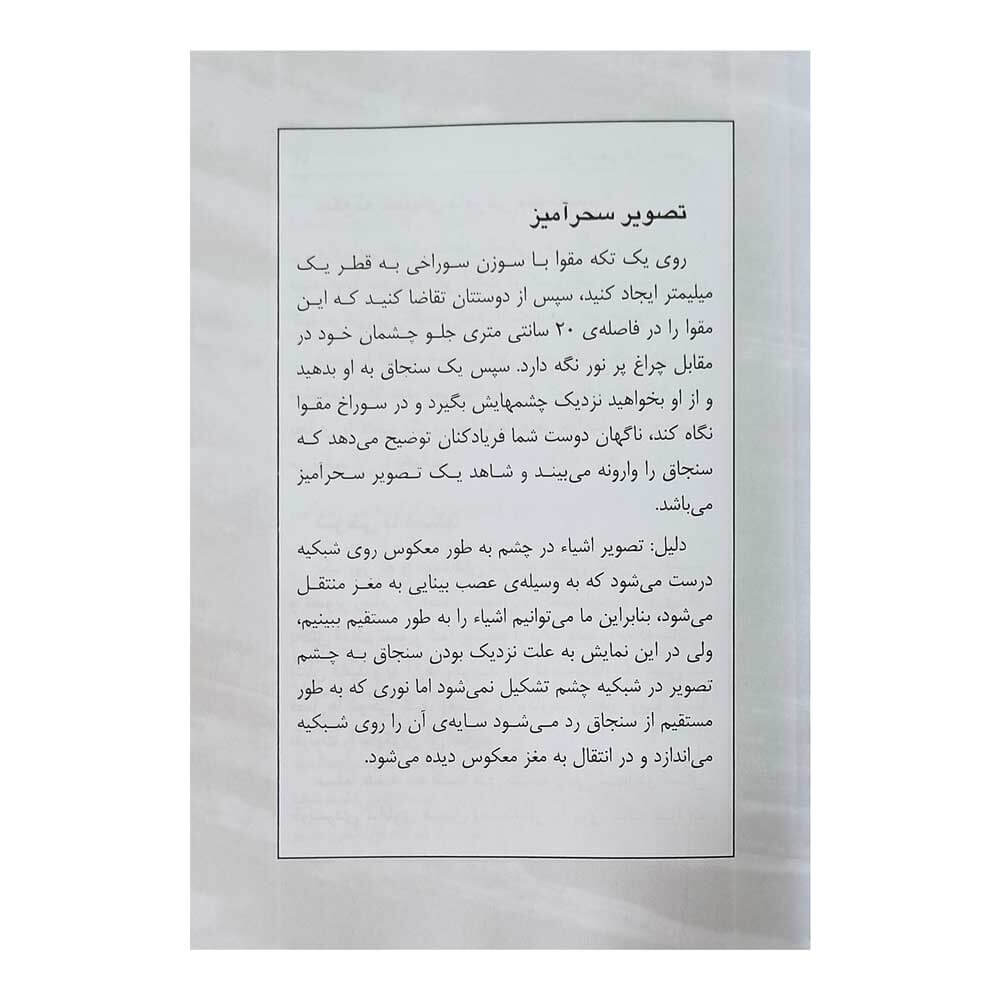 تصویر سحرآمیز
روی یک تکه مقوا با سوزن سوراخی به قطر یک
میلیمتر ایجاد کنید، سپس از دوستتان تقاضا کنید که این
مقوا را در فاصله‌ی ۲۰ سانتی متری جلو چشمان خود در
مقابل چراغ پر نور نگه دارد. سپس یک سنجاق به او بدهید
و از او بخواهید نزدیک چشمهایش بگیرد و در سوراخ مقوا
نگاه کند، ناگهان دوست شما فریادکنان توضیح می‌دهد که
سنجاق را وارونه می‌بیند و شاهد یک تصویر سحرآمیز
می‌باشد.
دلیل: تصویر اشیاء در چشم به طور معکوس روی شبکیه
درست می‌شود که به وسیله‌ی عصب بینایی به مغز منتقل
می‌شود، بنابراین ما می‌توانیم اشیاء را به طور مستقیم ببینیم،
ولی در این نمایش به علت نزدیک بودن سنجاق به چشم
تصویر در شبکیه چشم تشکیل نمی‌شود اما نوری که به طور
مستقیم از سنجاق رد می‌شود سایه‌ی آن را روی شبکیه
می‌اندازد و در انتقال به مغز معکوس دیده می‌شود.